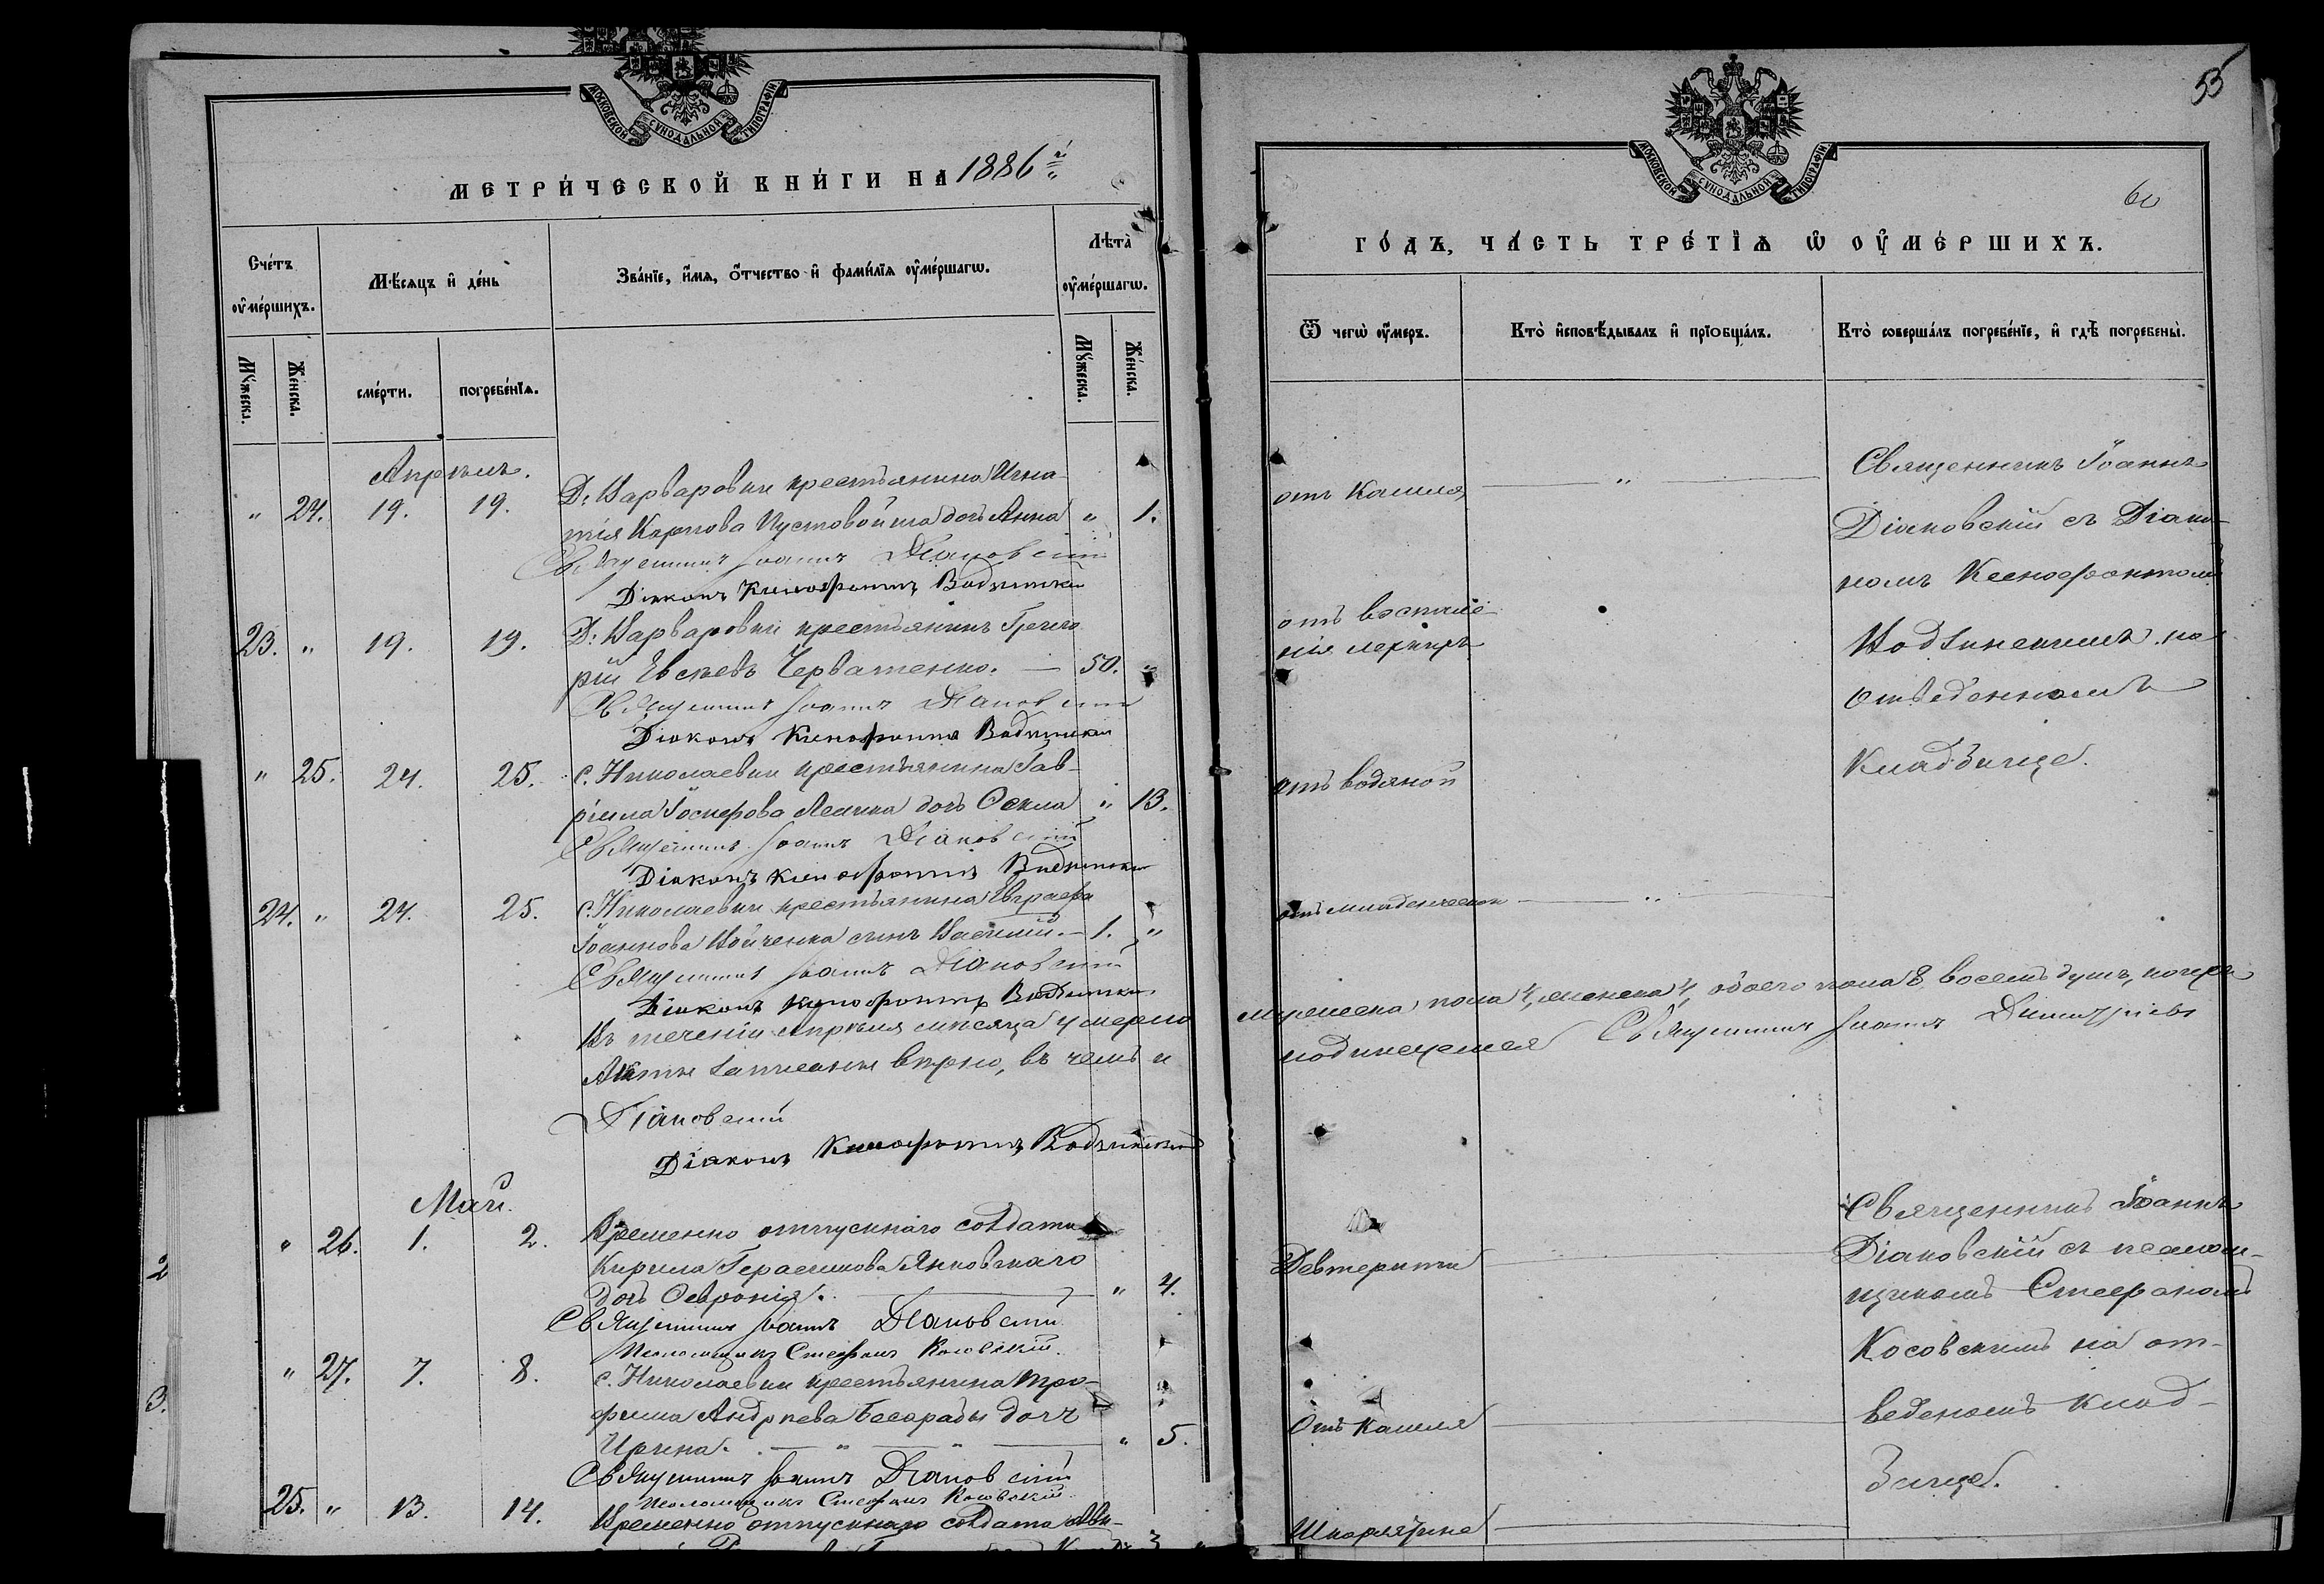 МОСКОВСКОЙ СѴНОДАЛЬНОЙ ТИПОГРАФІИ
МЕТРИ́ЧЕСКОЙ КНИ́ГИ НА 1886й
Сче́тъ ᲂу҆ме́ршихъ.
Мѣ́сяцъ и҆ де́нь
Зва́нїе, и҆́мя, ѻ҆́тчество и҆ фами́лїя ᲂу҆ме́ршагѡ.
Лѣ́та ᲂу҆ме́ршагѡ.
Мꙋ́жеска.
Же́нска.
сме́рти.
погребе́нїѧ.
Мꙋ́жеска.
Же́нска.
Апрѣль.
Д: Варваровки крестьянина Игна-
" 24. 19. 19. тія Карпова Пустовойта дочь Анна " 1.
Священникъ Іоаннъ Діановскій
Діаконъ Ксенофонтъ Водзинскій
23. " 19. 19. Д: Варваровки крестьянинъ Григо
рій Евсѣевъ Черватенко. — 50. "
Священникъ Іоаннъ Діановскій
Діаконъ Ксенофонтъ Водзинскій
" 25. 24. 25. с. Николаевки крестьянина Гав-
ріила Іосифова дочь " 13.
Священникъ Іоаннъ Діановскій
Діаконъ Ксенофонтъ Водзинскій
24. " 24. 25. с. Николаевки крестьянина Евграфа
Іоаннова Войченка сынъ Василій. — 1. "
Священникъ Іоаннъ Діановскій
Діаконъ Ксенофонтъ Водзинскій
Въ теченіи Апрѣля мѣсяца умерло
Акты записаны вѣрно, въ чемъ и
Діановскій
Діаконъ Ксенофонтъ Водзинскій
Май.
" 26. 1. 2. Временно отпускнаго солдата
Кирила Герасимова Янковскаго
дочь Февронія. " 4.
Священникъ Іоаннъ Діановскій
Псаломщикъ Стефанъ Косовскій.
" 27. 7. 8. с. Николаевки крестьянина Тро-
фима Андреева Бесарабы дочь
Ирина. — " — " — " 5.
Священникъ Іоаннъ Діановскій
Псаломщикъ Стефанъ Косовскій
25. " 13. 14. Временно отпускнаго солдата
2
3.
55
МОСКОВСКОЙ СѴНОДАЛЬНОЙ ТИПОГРАФІИ
60
ГО́ДЪ, ЧА́СТЬ ТРЕ́ТЇѦ Ѡ҆ ОУ҆МЕ́РШИХЪ.
Ѿ чегѡ̀ ᲂу҆́меръ.
Кто̀ и҆сповѣ́дывалъ и҆ прїобща́лъ.
Кто̀ соверша́лъ погребе́нїе, и҆ гдѣ̀ погребены̀.
отъ Кашля
"
Священникъ Іоаннъ
Діановскій съ Діако-
номъ Ксенофонтомъ
Водзинскимъ на
отведенномъ
Кладбищѣ.
отъ воспале-
нія легкихъ
отъ водяной
отъ младенческой "
мужеска пола 4, женска 4, обоего пола 8 восемь душъ,
подписуемся Священникъ Іоаннъ
Девтерита
Священникъ Іоаннъ
Діановскій съ псалом-
щикомъ Стефаномъ
Косовскимъ на от-
веденомъ клад-
бищѣ.
Отъ Кашля
Шкарлятина